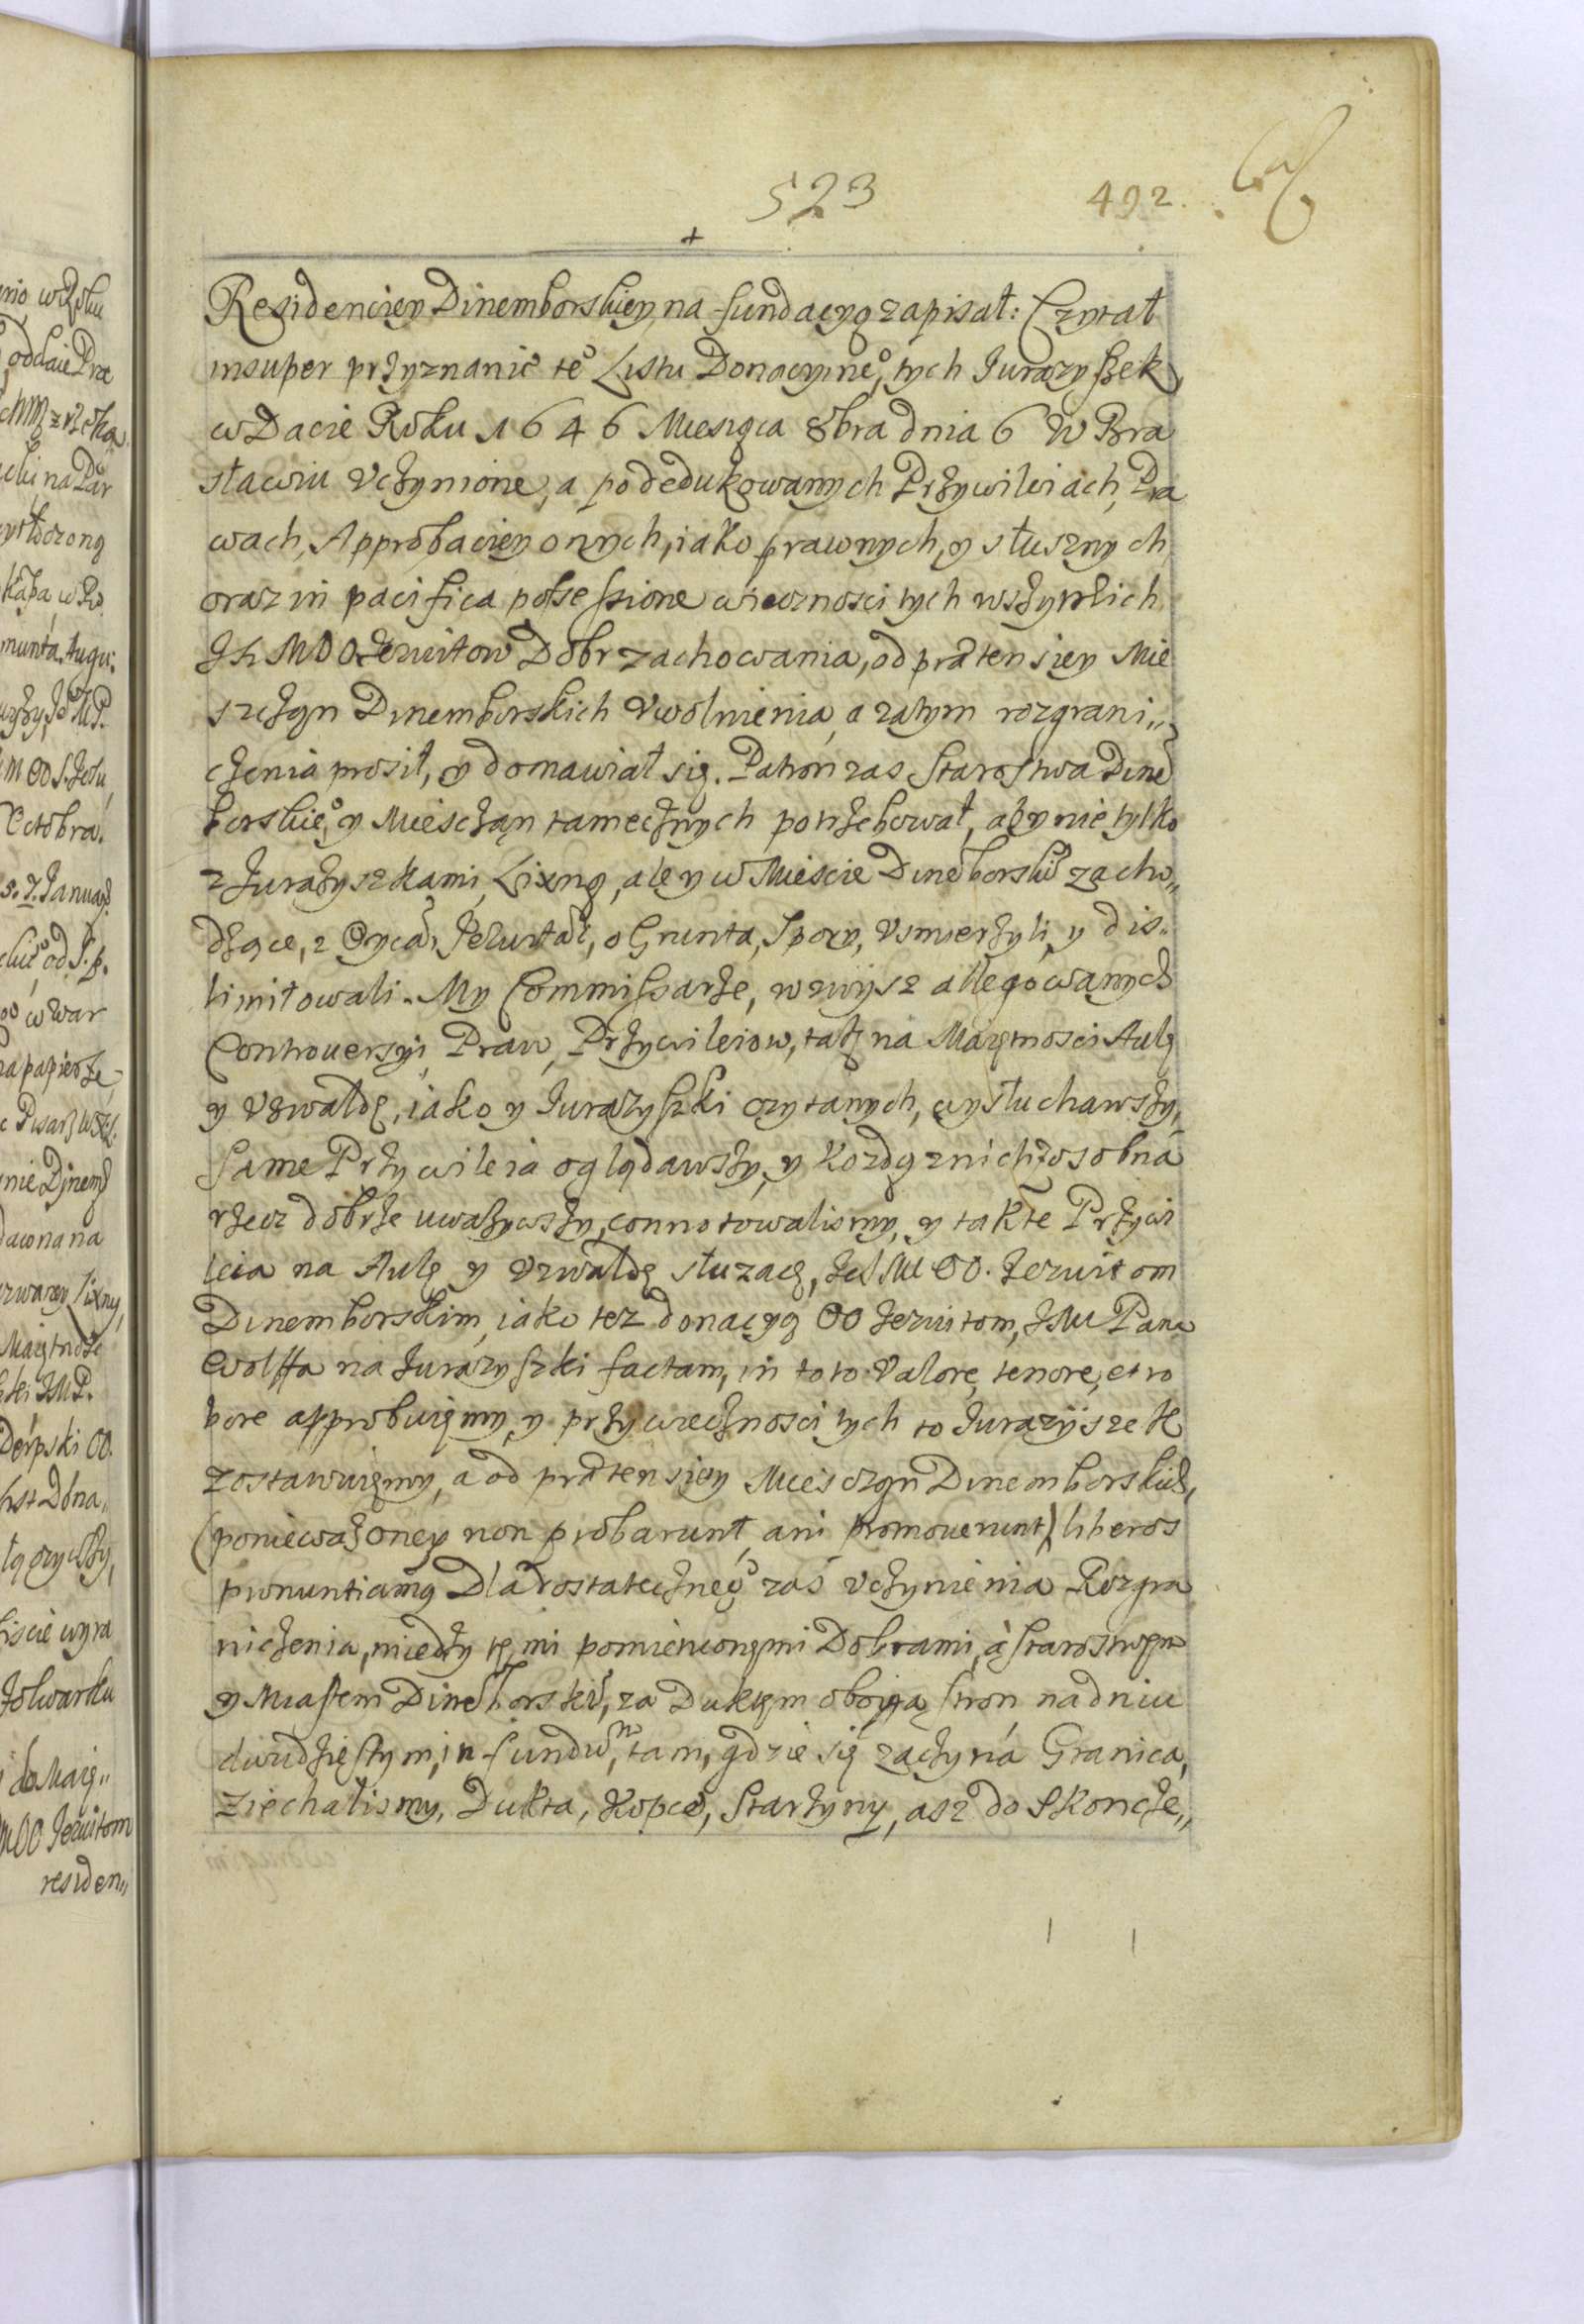 523 492.
Residenciey Dinemborskiey na fundacyą zapisał: Czytał
insuper przyznanie te° Listu Donacyine°, tych Jurazyszek,
w Dacie Roku 1646 Miesiąca 8bra dnia 6 W Bra
sławiu Vczynione, a po dedukowanych Przywileiach, Pra
wach, Approbaciey onych, iako prawnych, y słusznych
oraz in pacifica possessione wiecznosci tych wszytkich
Jezuitow Dobr zachowania, od prætensiey Mie
szczan Dinemborskich Vwolnienia, a zatym rozgrani„
czenia prosił, y domawiał się. Patron zas Starostwa Dine
borskie°, y Mieszczan tamecznych potrzebował, aby nie tylko
z Jurazyszkami, Lixną, ale y w Miescie Dineborski zacho„
dzące, z Oyca Jezuita, o Grunta, Spory, Vsmierzyli, y dis„
limitowali. My Commissarze, wzwysz allegowanych
Controuersyi, Praw, Przywileiow, tak na Maiętnosci Aulę
y Vzwałdę, iako y Jurazyszki czytanych, wysłuchawszy,
same Przywileia oglądawszy, y kozdą z nich zosobna
rzecz dobrze uwazywszy, connotowalismy, y tak te Przywi
leia na Aulę y Vzwałdę słuzacę, OO. Jezuitom
Dinemborskim, iako tez donacyą OO Jezuitom, JM Pana
Wolffa na Jurazyszki factam, in toto valore, tenore, et ro
bore approbuiemy, y przy wiecznosci tych to Jurazyszek
zostawuiemy, a od prætensiey Miesczan Dinemborskich,
(poniewaz oney non probarunt, ani promouerunt) liberos
pronuntiamy Dla dostateczne° zas Vczynienia Rozgra
niczenia, miedzy temi pomienionemi Dobrami, a starostwem
y Miastem Dineborski, za Duktem oboyga stron na dniu
dwudziestym, in fundum, tam, gdzie się zaczyna Granica,
Ziechalismy, Dukta, Kopce, Starzyny, asz do Skoncze„